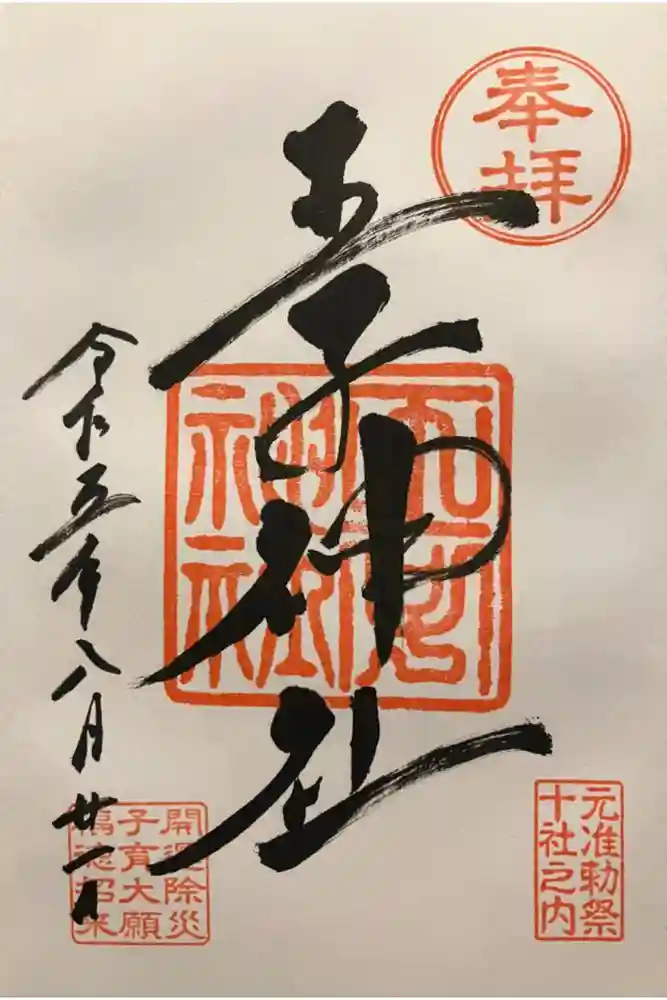 奉拝
王子神社
元准勅祭
十社之内
令和五年八月廿一日
開運除災
子育大願
福徳招来